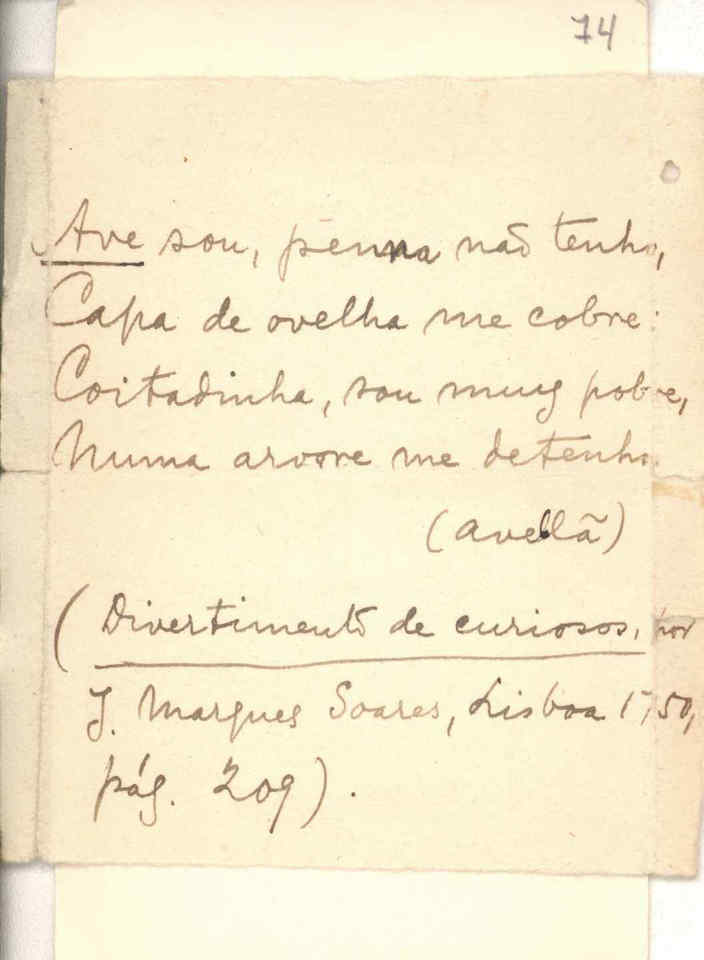 74
Ave sou, penna não tenho,
Capa de ovelha me cobre:
Coitadinha, sou muy pobre,
Numa arvore me detenho.
(avellã)
(Divertimento de curiosos, por
J. Marques Soares, Lisboa 1750,
pág. 209).